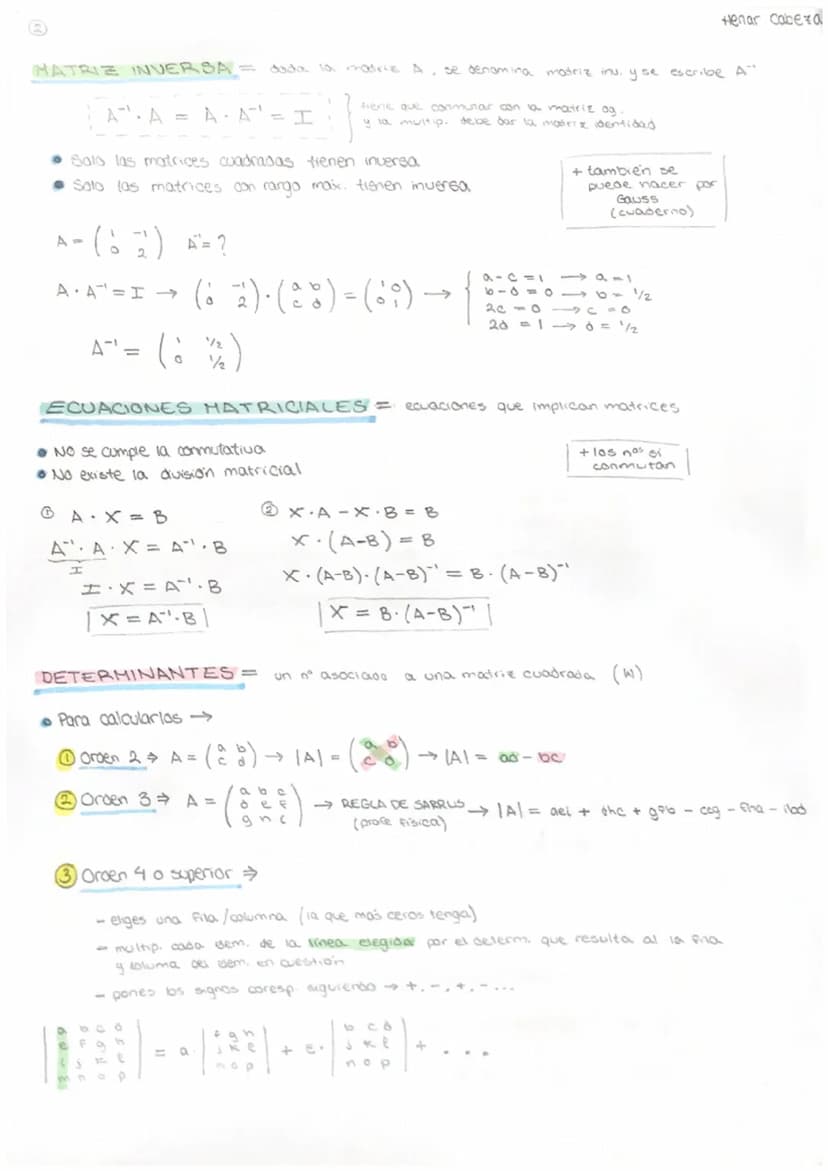 2
Henar Cabeza
MATRIZ INVERSA = dada la matriz A, se denomina matriz inv. y se escribe A⁻¹
A⁻¹ · A = A · A⁻¹ = I
tiene que conmutar con la matriz og.
y la multip. debe dar la matriz identidad
• Solo las matrices cuadradas tienen inversa
• Solo las matrices con rango max. tienen inversa
+ también se
puede hacer por
Gauss
(cuaderno)
A = (1 -1
0 2) A⁻¹ = ?
A · A⁻¹ = I → (1 -1
0 2) · (a b
c d) = (1 0
0 1) →
a - c = 1 → a = 1
b - d = 0 → b = 1/2
2c = 0 → c = 0
2d = 1 → d = 1/2
A⁻¹ = (1 1/2
0 1/2)
ECUACIONES MATRICIALES = ecuaciones que implican matrices
• NO se cumple la conmutativa
• No existe la división matricial
+ los nºs sí
conmutan
① A · X = B
A⁻¹ · A · X = A⁻¹ · B
I
I · X = A⁻¹ · B
X = A⁻¹ · B
② X · A - X · B = B
X · (A-B) = B
X · (A-B) · (A-B)⁻¹ = B · (A-B)⁻¹
X = B · (A-B)⁻¹
DETERMINANTES = un nº asociado a una matriz cuadrada
• Para calcularlos →
① Orden 2 ⇒ A = (a b
c d) → |A| = (a b
c d) → |A| = ad - bc
② Orden 3 ⇒ A = (a b c
d e f
g h i) → REGLA DE SARRUS
(profe física)
→ |A| = aei + dhc + gfb - ceg - fha - ibd
③ Orden 4 o superior ⇒
- eliges una fila/columna (la que más ceros tenga)
- multip. cada elem. de la línea elegida por el determ. que resulta al la fila
y columa del elem. en cuestión
- pones los signos corresp. siguiendo → +, -, +, - ...
|a b c d
e f g h
i j k l
m n o p| = a · |f g h
j k l
n o p| + e · |b c d
j k l
n o p| + ...